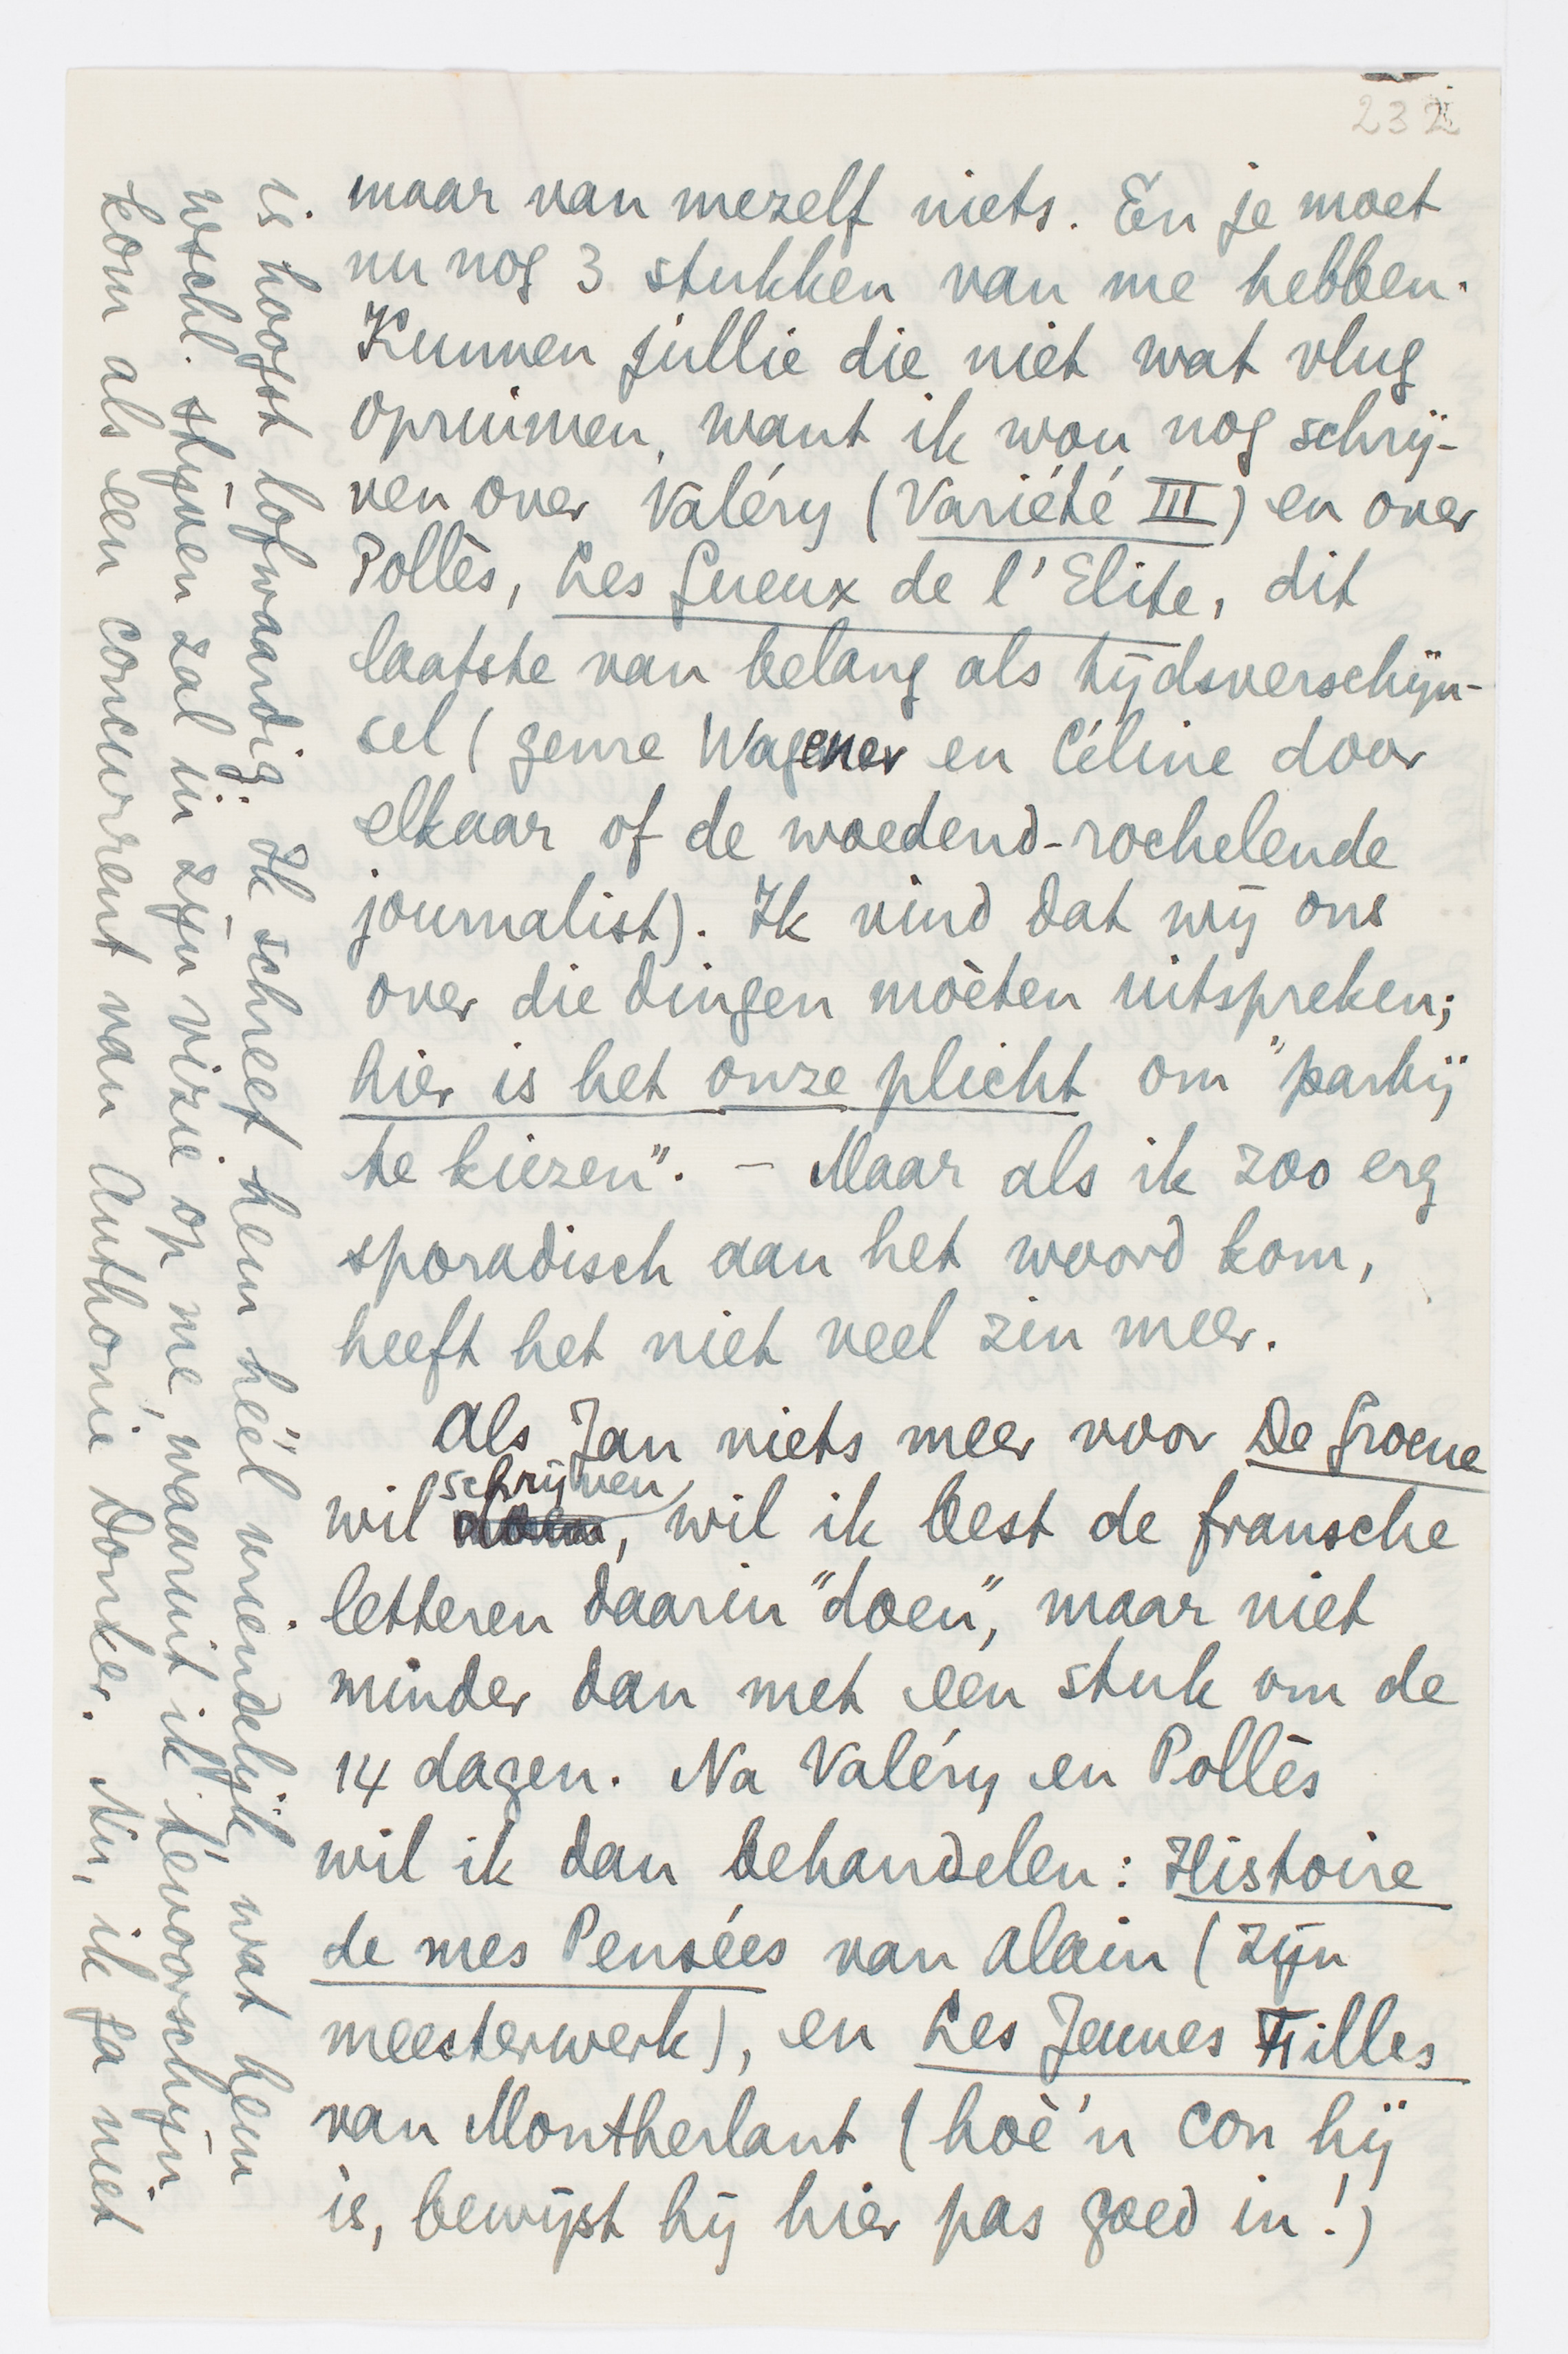 232
maar van mezelf niets. En je moet
nu nog 3 stukken van me hebben.
Kunnen jullie die niet wat vlug
opruimen, want ik wou nog schrij-
ven over Valéry (Variété III) en over
Pollès, Les Gueux de l'Elite, dit
laatste van belang als tijdsverschijn-
sel (genre Wagener en Céline door
elkaar of de woedend-rochelende
journalist). Ik vind dat wij ons
over die dingen moèten uitspreken;
hier is het onze plicht om "partij
te kiezen". - Maar als ik zoo erg
sporadisch aan het woord kom,
heeft het niet veel zin meer.
Als Jan niets meer voor De Groene
wil schrijven, wil ik best de fransche
letteren daarin "doen", maar niet
minder dan met één stuk om de
14 dagen. Na Valéry en Pollès
wil ik dan behandelen: Histoire
de mes Pensées van Alain (zijn
meesterwerk), en Les Jeunes Filles
van Montherlant (hoè'n con hij
is, bewijst hij hier pas goed in!)
is hoogst lofwaardig. Ik schreef hem héél vriendelijk, wat hem
wschl. stijven zal in zijn vizie op me, waaruit ik tevoorschijn
kom als een concurrent van Anthonie Donker. Nu, ik ga niet